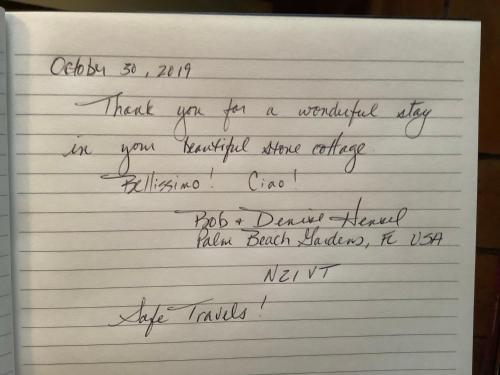 October 30, 2019
Thank you for a wonderful stay
in your beautiful stone cottage.
Bellissimo! Ciao!
Bob + Denise Henkel
Palm Beach Gardens, FL USA
N21VT
Safe Travels!